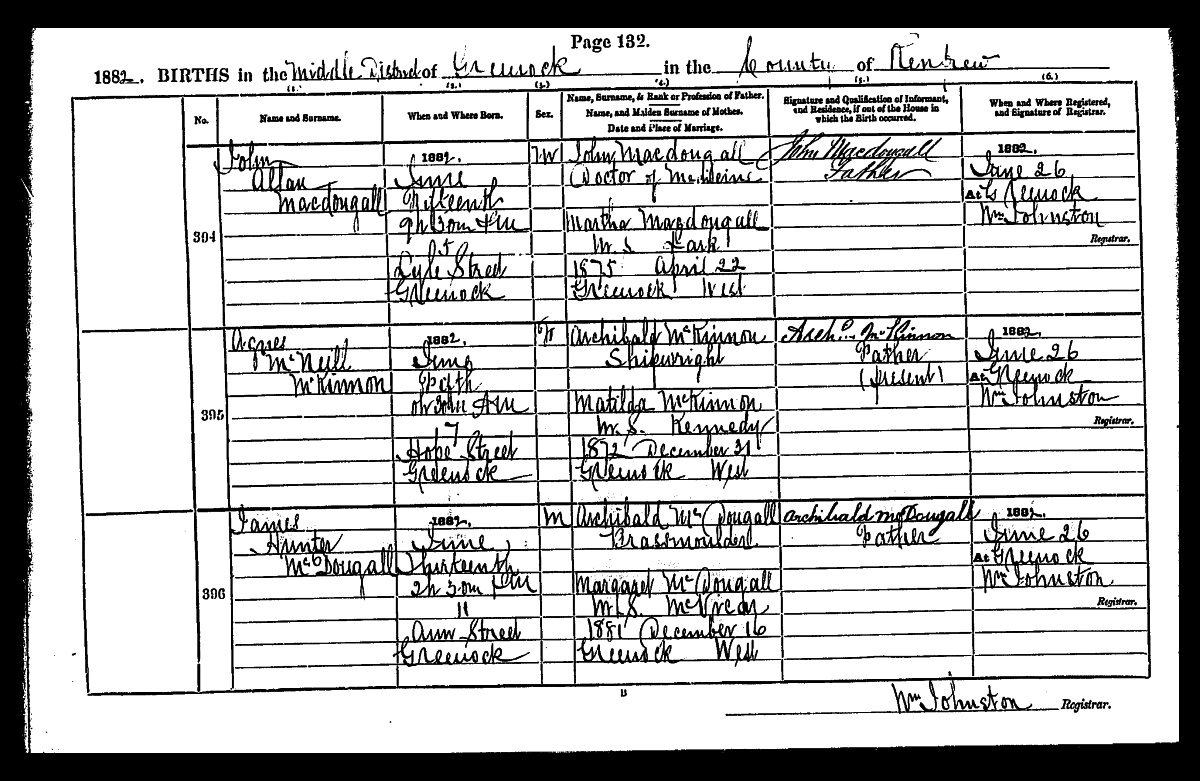 Page 132.
1882. BIRTHS in the Middle District of Greenock in the County of Renfrew
(1.) (2.) (3.) (4.) (5.) (6.)
No.
Name and Surname.
When and Where Born.
Sex.
Name, Surname, & Rank or Profession of Father.
Name, and Maiden Surname of Mother.
Date and Place of Marriage.
Signature and Qualification of Informant,
and Residence, if out of the House in
which the Birth occurred.
When and Where Registered,
and Signature of Registrar.
394
John
Allan
Macdougall
1882.
June
Fifteenth
9h 30m PM
5
Lyle Street
Greenock
M
John Macdougall
Doctor of Medicine
Martha Macdougall
M.S. Park
1875 April 22
Greenock West
John Macdougall
Father
1882.
June 26
At Greenock
Wm Johnston
Registrar.
395
Agnes
McNeill
McKinnon
1882.
June
0h 30m AM
7
Hope Street
Greenock
F
Archibald McKinnon
Shipwright
Matilda McKinnon
M.S. Kennedy
1872 December 31
Greenock West
Archd McKinnon
Father
(Present)
1882.
June 26
At Greenock
Wm Johnston
Registrar.
396
James
Hunter
McDougall
1882.
June
Thirteenth
2h 30m PM
11
Ann Street
Greenock
M
Archibald McDougall
Brassmoulder
Margaret McDougall
M.S. McVicar
1881 December 16
Greenock West
Archibald McDougall
Father
1882.
June 26
At Greenock
Wm Johnston
Registrar.
Wm Johnston Registrar.